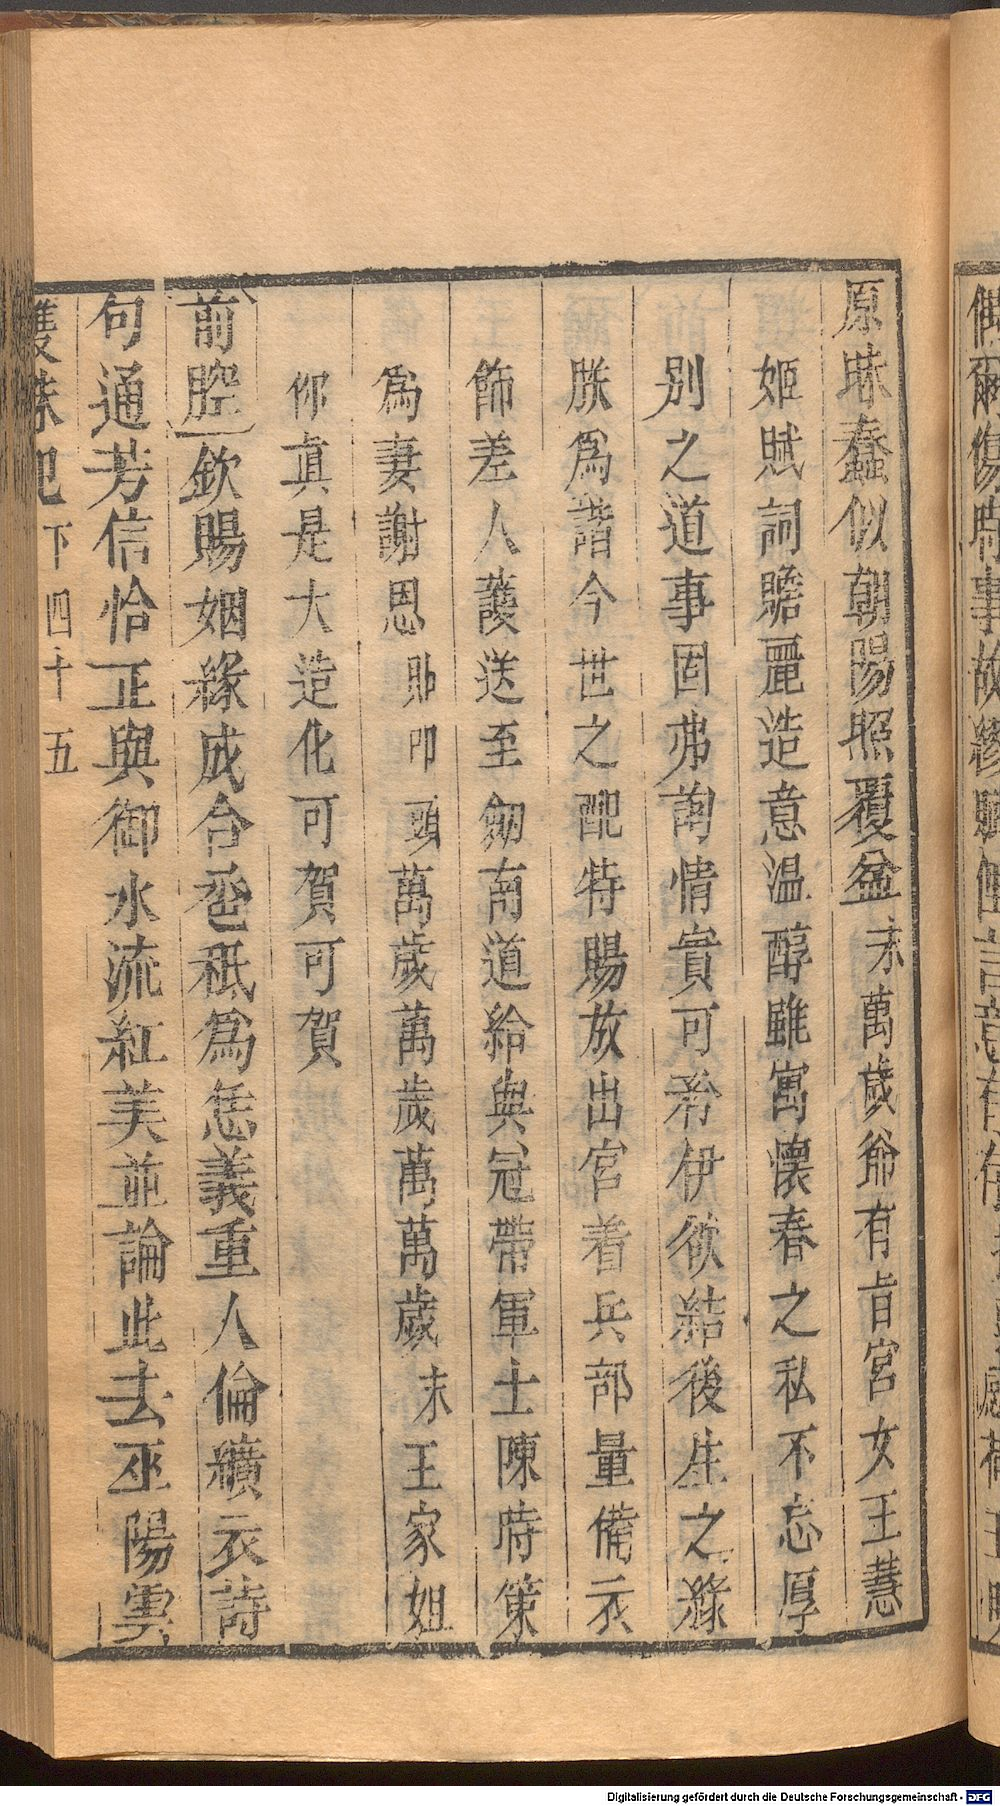 原昧蠢似朝陽照覆盆末萬歲爺有旨宮女王慧
姬賦詞贍麗造意温醇雖寓懷春之私不忘厚
別之道事固弗詢情實可矜伊欲結後生之緣
朕爲諧今世之配特賜放出宮着兵部量備衣
飾差人護送至劒南道給與冠帶軍士陳時策
爲妻謝恩貼叩頭萬歲萬歲萬萬歲末王家姐
你眞是大造化可賀可賀
前腔欽賜姻緣成合巹秖爲恁義重人倫纊衣詩
句通芳信恰正與御水流紅美並論此去巫陽雲
雙珠記 下 四十五
Digitalisierung gefördert durch die Deutsche Forschungsgemeinschaft - DFG